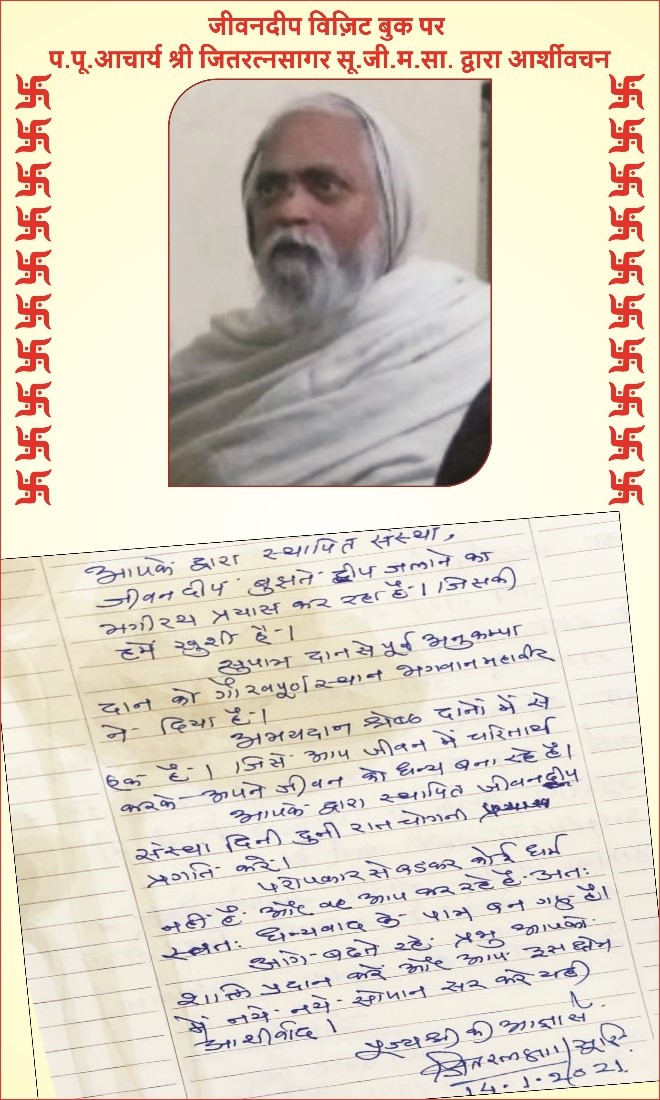 जीवनदीप विज़िट बुक पर
प.पू.आचार्य श्री जितरत्नसागर सू.जी.म.सा. द्वारा आर्शीवचन
आपके द्वारा स्थापित संस्था,
जीवन दीप बुझते दीप जलाने का
भगीरथ प्रयास कर रहा है। जिसकी
हमें खुशी है।
सुपात्र दान से पूर्व अनुकम्पा
दान को गौरवपूर्ण स्थान भगवान महावीर
ने दिया है।
अभयदान श्रेष्ठ दानों में से
एक है। जिसे आप जीवन में चरितार्थ
करके अपने जीवन को धन्य बना रहे है।
आपके द्वारा स्थापित जीवनदीप
संस्था दिनी दुनी रात चोगनी
प्रगति करें।
परोपकार से बडकर कोई धर्म
नहीं है और वह आप कर रहे है अतः
स्वतः धन्यवाद के पात्र बन गए है।
आगे बढते रहें प्रभु आपको
शक्ति प्रदान करें और आप इस क्षेत्र
में नये-नये सोपान सर करे यही
आशीर्वाद।
पूज्यश्री की आज्ञा से
14.1.2021